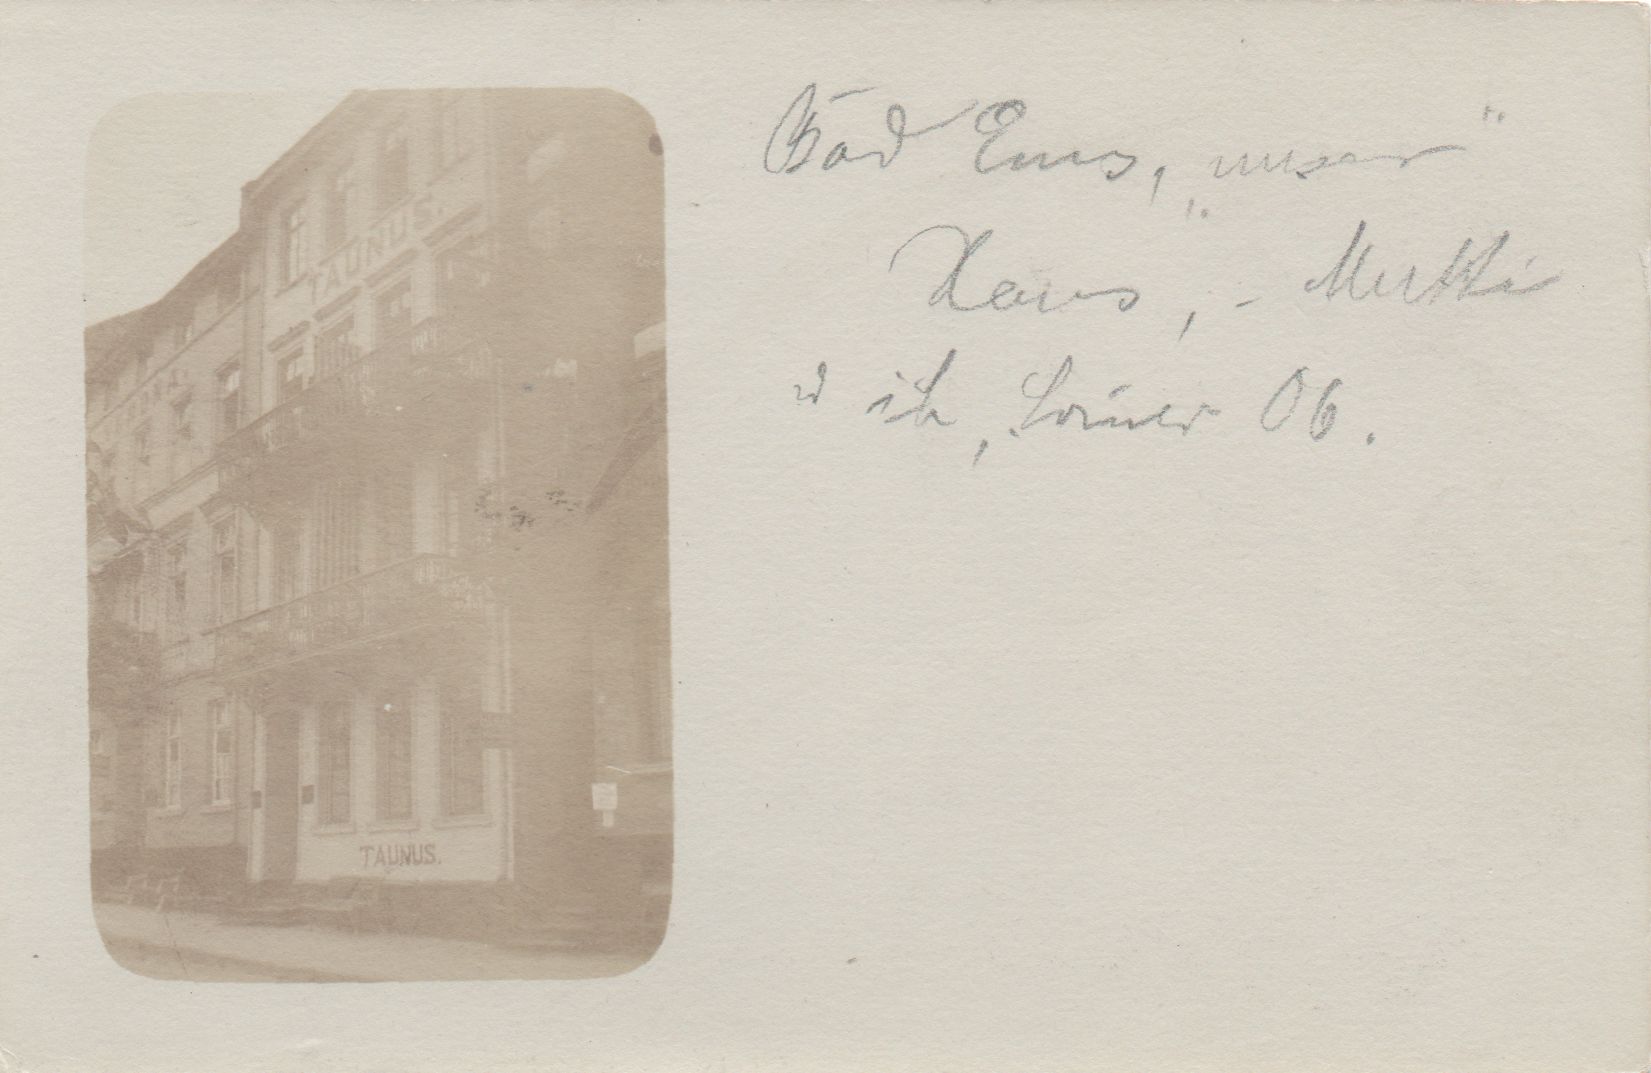 TAUNUS.
TAUNUS.
Bad Ems, „unser"
Haus, - Mutti
u ich, Sommer 06.